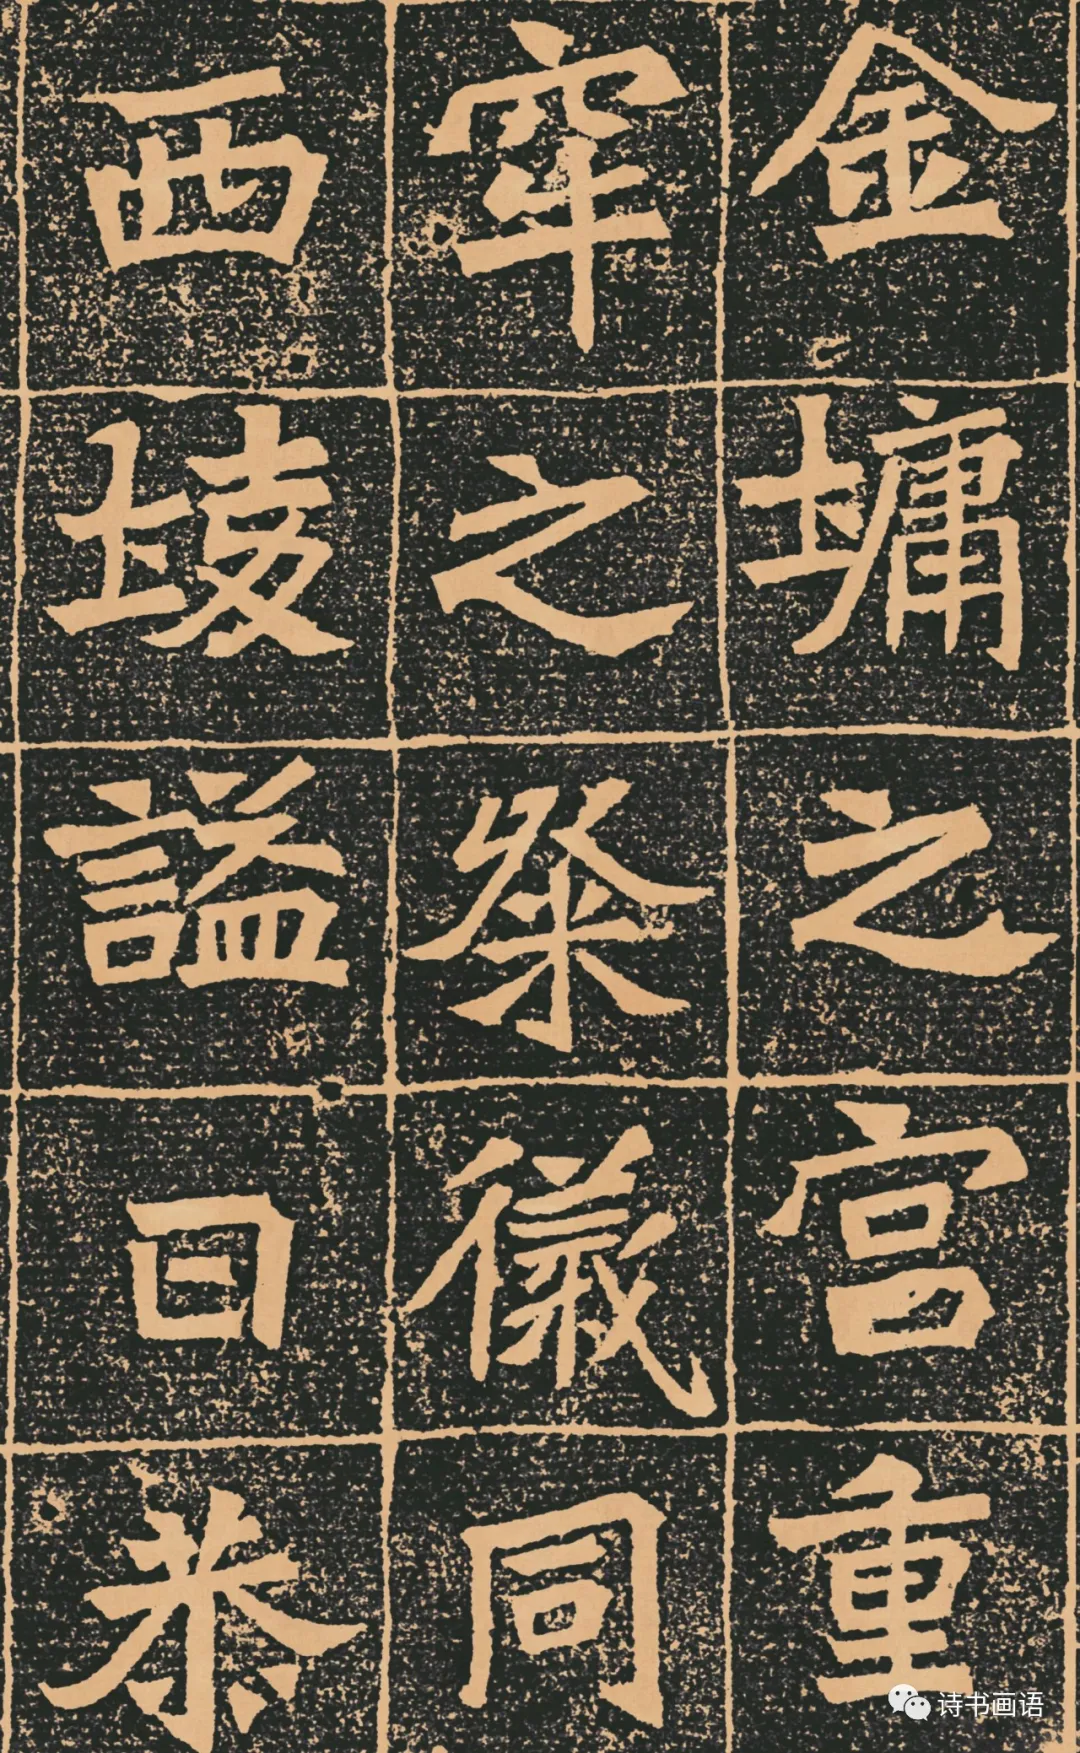 金墉之宫重
窂之祭儀同
西陵謚曰恭
诗书画语